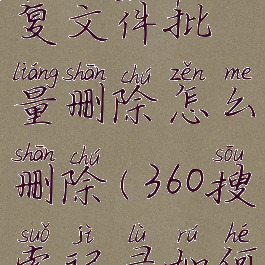 复文件批
liáng shān chú zěn me
量删除怎么
shān chú sōu
删除(360搜
suǒ jì lù rú hé
索记录如何